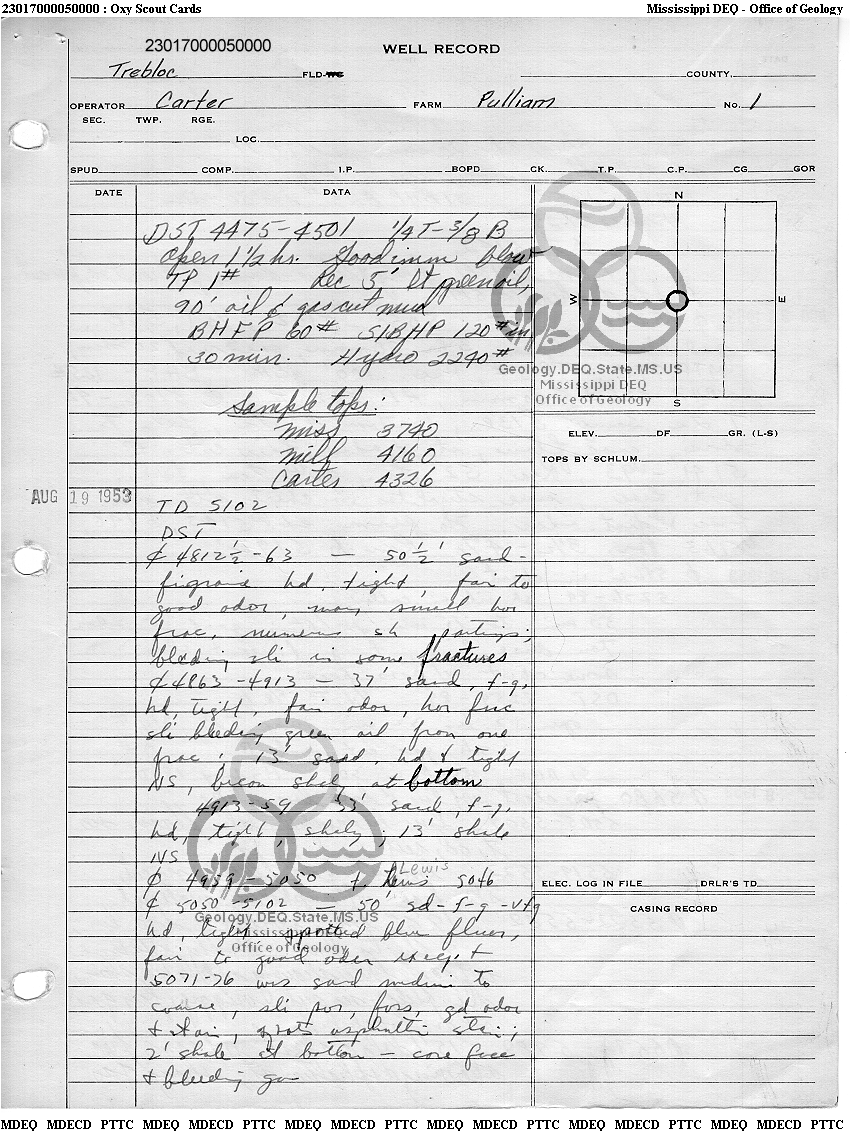 23017000050000 : Oxy Scout Cards Mississippi DEQ - Office of Geology
23017000050000
WELL RECORD
Trebloc FLD-WC COUNTY
OPERATOR Carter FARM Pulliam No. 1
SEC. TWP. RGE.
LOC.
SPUD COMP. I.P. BOPD CK. T.P. C.P. CG GOR
DATE DATA
N
W E
S
DST 4475-4501 1/4 T-3/8 B
open 1 1/2 hs. Good imm blow
TP 1# Rec 5' lt green oil,
90' oil & gas cut mud
BHFP 60# SIBHP 120# in
30 min. Hydro 2240#
Geology.DEQ.State.MS.US
Mississippi DEQ
Office of Geology
Sample tops:
Miss 3740
Mill 4160
Carter 4326
ELEV. DF. GR. (L-S)
TOPS BY SCHLUM.
AUG 19 1953
TD 5102
DST
₵ 4812½-63 — 50½' sand-
hd, tight, fair to
good odor, many small hor
frac, numerous sh partings;
bleeding sli in some fractures
₵ 4863-4913 — 37' sand, f-g,
hd, tight, fair odor, hor frac
sli bleeding green oil from one
frac; 13' sand, hd & tight
NS, becom shaly at bottom
4913-59 33' sand, f-g,
hd, tight, shaly; 13' shale
NS
Lewis
₵ 4959-5050 t. Lewis 5046
ELEC. LOG IN FILE DRLR'S TD
₵ 5050-5102 — 50' sd-f-g-vfg
CASING RECORD
Geology.DEQ.State.MS.US
Mississippi DEQ
Office of Geology
hd, tight, spotted blue fluor,
fair to good odor except
5071-76 was sand medium to
coarse, sli por, foss, gd odor
& stain, asphaltic stain;
2' shale at bottom — core frac
& bleeding gas
MDEQ MDECD PTTC MDEQ MDECD PTTC MDEQ MDECD PTTC MDEQ MDECD PTTC MDEQ MDECD PTTC MDEQ MDECD PTTC